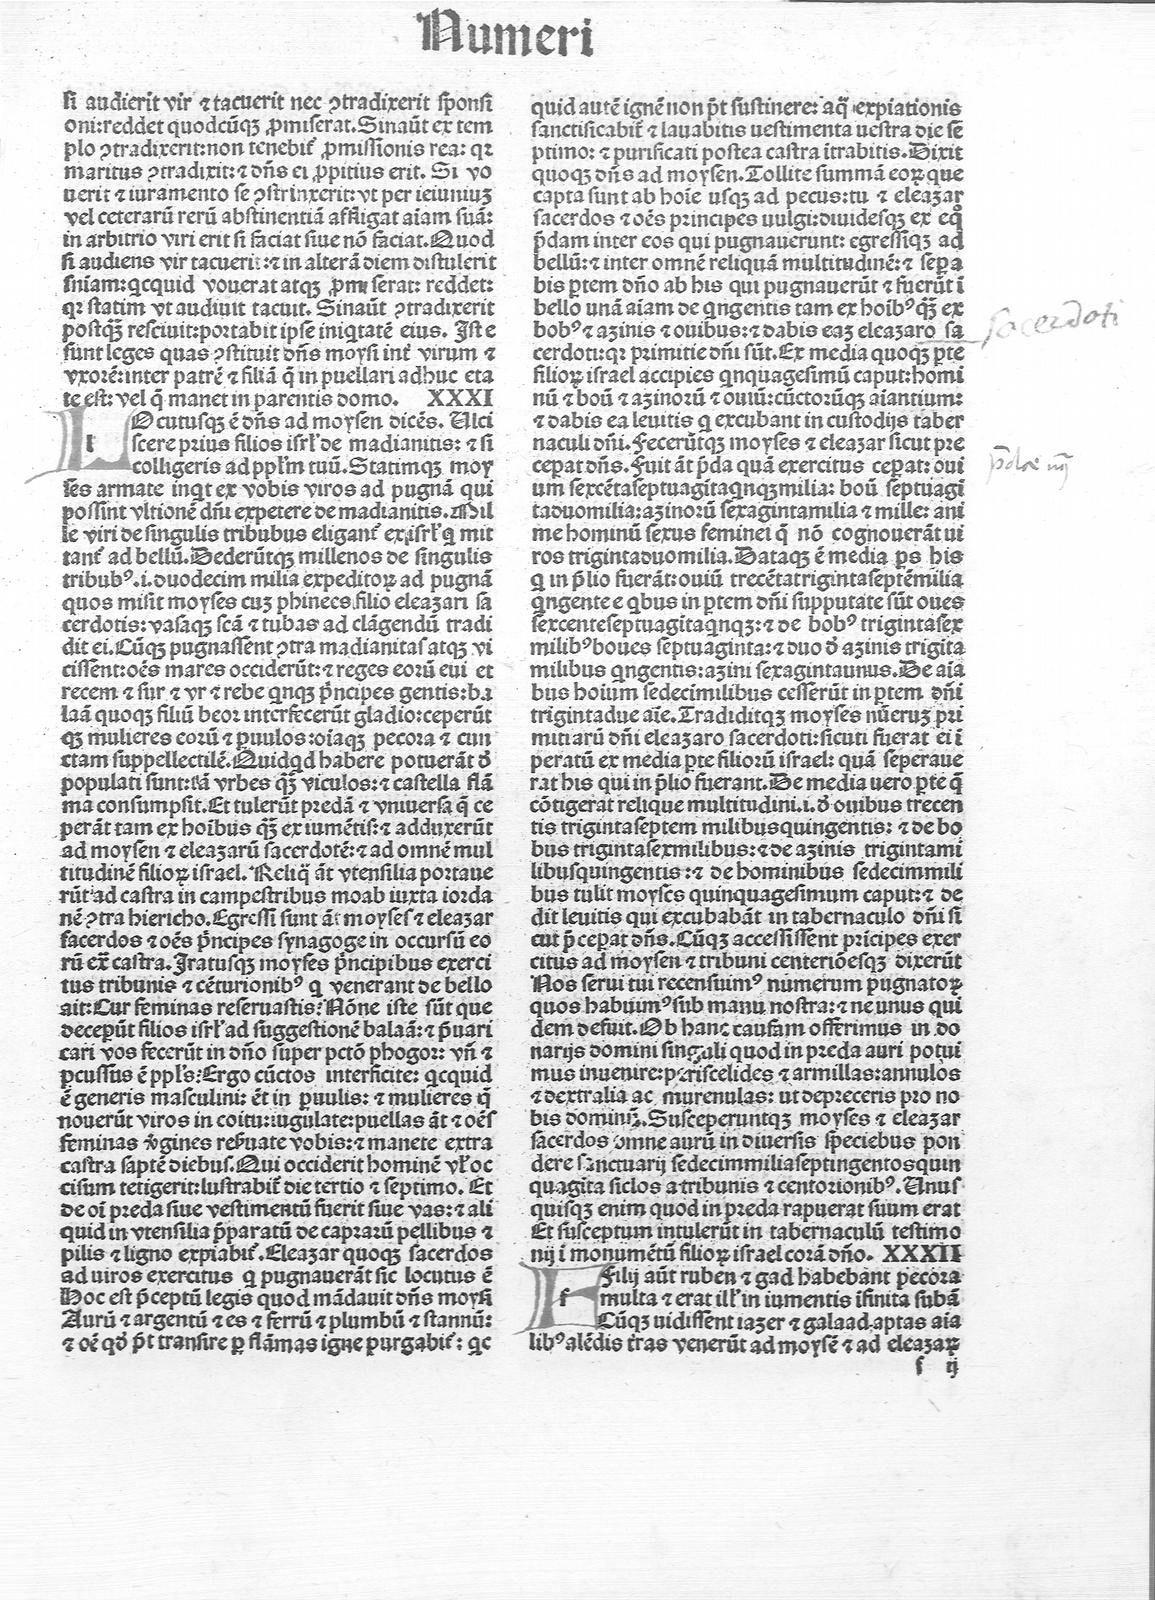 Numeri
si audierit vir ⁊ tacuerit nec ꝯtradixerit sponsi
oni:reddet quodcūqꝫ ꝓmiserat.Sinaūt ex tem
plo ꝯtradixerit:non tenebit᷑ ꝓmissionis rea: qꝛ
maritus ꝯtradixit:⁊ dn̄s ei ꝓpitius erit. Si vo
uerit ⁊ iuramento se ꝯstrinxerit: vt per ieiuniuꝫ
vel ceterarū rerū abstinentiā affligat aīam suā:
in arbitrio viri erit si faciat siue nō faciat.Quod
si audiens vir tacuerit:⁊ in alterā diem distulerit
sniam:qcquid vouerat atqꝫ ꝓmiserat: reddet:
qꝛ statim vt audiuit tacuit. Sinaūt ꝯtradixerit
postq̄ꝫ resciuit:portabit ipse iniqtatē eius. Iste
sunt leges quas ꝯstituit dn̄s moysi int᷑ virum ⁊
vxorē:inter patrē ⁊ filiā q̄ in puellari adhuc eta
te est: vel q̄ manet in parentis domo. XXXI
LOcutusqꝫ ē dn̄s ad moysen dicēs. Ulci
l
scere prius filios isrl̓ de madianitis: ⁊ si
colligeris ad ppl̓m tuū.Statimqꝫ moy
ses armate inqt ex vobis viros ad pugnā qui
possint vltionē dn̄i expetere de madianitis.Mil
le viri de singulis tribubus eligant᷑ ex isrl̓ q mit
tant᷑ ad bellū.Dederūtqꝫ millenos de singulis
tribubꝰ.i.duodecim milia expeditoꝝ ad pugnā
quos misit moyses cuꝫ phinees filio eleazari sa
cerdotis: vasaqꝫ scā ⁊ tubas ad clāgendū tradi
dit ei.Cūqꝫ pugnassent ꝯtra madianitas atqꝫ vi
cissent:oēs mares occiderūt:⁊ reges eorū eui et
recem ⁊ sur ⁊ vr ⁊ rebe qnqꝫ p̄ncipes gentis:ba
laā quoqꝫ filiū beor interfecerūt gladio:ceperūt
qꝫ mulieres eorū ⁊ ꝑuulos:oīaqꝫ pecora ⁊ cun
ctam suppellectilē.Quidqd habere potuerāt ð
populati sunt:tā vrbes q̄ꝫ viculos:⁊ castella flā
ma consumpsit.Et tulerūt predā ⁊ vniuersa q̄ ce
perāt tam ex hoībus q̄ꝫ ex iumētis:⁊ adduxerūt
ad moysen ⁊ eleazarū sacerdotē:⁊ ad omnē mul
titudinē filioꝝ israel.Reliq̄ āt vtensilia portaue
rūt ad castra in campestribus moab iuxta iorda
nē ꝯtra hiericho.Egressi sunt āt moyses ⁊ eleazar
sacerdos ⁊ oēs p̄ncipes synagoge in occursū eo
rū ex̄ castra.Iratusqꝫ moyses p̄ncipibus exerci
tus tribunis ⁊ cēturionibꝰ q venerant de bello
ait:Cur feminas reseruastis?Nōne iste sūt que
deceperūt filios isrl̓ ad suggestionē balaā:⁊ p̄uari
cari vos fecerūt in dn̄o super pctō phogor: vn̄ ⁊
ꝑcussus ē ppl̓s:Ergo cūctos interficite: qcquid
ē generis masculini: ēt in ꝑuulis: ⁊ mulieres q̄
nouerūt viros in coitu:iugulate:puellas āt ⁊ oēs
feminas v̓gines reẜuate vobis:⁊ manete extra
castra septē diebus.Qui occiderit hominē vl̓ oc
cisum tetigerit:lustrabit᷑ die tertio ⁊ septimo. Et
de oī preda siue vestimentū fuerit siue vas:⁊ ali
quid in vtensilia p̄paratū de caprarū pellibus ⁊
pilis ⁊ ligno expiabit᷑.Eleazar quoqꝫ sacerdos
ad uiros exercitus q pugnauerāt sic locutus ē
Hoc est p̄ceptū legis quod mādauit dn̄s moysi
Aurū ⁊ argentū ⁊ es ⁊ ferrū ⁊ plumbū ⁊ stannū:
⁊ oē qð p̄t transire ꝑ flāmas igne purgabit᷑: qc
quid autē ignē non p̄t sustinere: aq̄ expiationis
sanctificabit᷑ ⁊ lauabitis uestimenta uestra die se
ptimo: ⁊ purificati postea castra ītrabitis.Dixit
quoqꝫ dn̄s ad moysen.Tollite summā eoꝝ que
capta sunt ab hoīe usqꝫ ad pecus:tu ⁊ eleazar
sacerdos ⁊ oēs principes uulgi:diuidesqꝫ ex eq̊
p̄dam inter eos qui pugnauerunt: egressiqꝫ ad
bellū:⁊ inter omnē reliquā multitudinē:⁊ sepa
bis ꝑtem dn̄o ab his qui pugnauerūt ⁊ fuerūt ī
bello unā aīam de qngentis tam ex hoībꝰ q̄ꝫ ex
bobꝰ ⁊ azinis ⁊ ouibus:⁊ dabis eaꝫ eleazaro sa
cerdoti:qꝛ primitie dn̄i sūt.Ex media quoqꝫ ꝑte
filioꝝ israel accipies qnquagesimū caput:homi
nū ⁊ boū ⁊ azinorū ⁊ ouiū:cūctorūqꝫ aīantium:
⁊ dabis ea leuitis q excubant in custodijs taber
naculi dn̄i.Fecerūtqꝫ moyses ⁊ eleazar sicut pre
ceperat dn̄s.Fuit āt p̄da quā exercitus ceperat: oui
um sexcētaseptuagitaqnqꝫmilia: boū septuagi
taduomilia:azinorū sexagintamilia ⁊ mille: ani
me hominū sexus feminei q̄ nō cognouerāt ui
ros trigintaduomilia.Dataqꝫ ē media ꝑs his
q in p̄lio fuerāt:ouiū trecētatrigintaseptēmilia
qngente e qbus in ꝑtem dn̄i supputate sūt oues
sexcenteseptuagitaqnqꝫ:⁊ de bobꝰ trigintasex
milibꝰ boues septuaginta:⁊ duo ð azinis trigita
milibus qngentis:azini sexagintaunus.De aīa
bus hoīum sedecimilibus cesserūt in ꝑtem dn̄i
trigintadue aīe.Tradiditqꝫ moyses nūeruꝫ pri
mitiarū dn̄i eleazaro sacerdoti:sicuti fuerat ei ī
peratū ex media ꝑte filiorū israel: quā seperaue
rat his qui in p̄lio fuerant.De media uero ꝑte q̄
cōtigerat relique multitudini.i.ð ouibus trecen
tis trigintaseptem milibusquingentis: ⁊ de bo
bus trigintasexmilibus:⁊ de azinis trigintami
libusquingentis:⁊ de hominibus sedecimmili
bus tulit moyses quinquagesimum caput:⁊ de
dit leuitis qui excubabāt in tabernaculo dn̄i si
cut p̄ceperat dn̄s.Cūqꝫ accessissent prīcipes exer
citus ad moysen ⁊ tribuni centeriōesqꝫ dixerūt
Nos serui tui recensuimꝰ numerum pugnatoꝝ
quos habuimꝰ sub manu nostra:⁊ ne unus qui
dem defuit.Ob hanc causam offerimus in do
narijs domini singuli quod in preda auri potui
mus inuenire:periscelides ⁊ armillas:annulos
⁊ dextralia ac murenulas: ut depreceris pro no
bis dominuꝫ.Susceperuntqꝫ moyses ⁊ eleazar
sacerdos omne aurū in diuersis speciebus pon
dere sanctuarij sedecimmiliaseptingentosquin
quagita siclos a tribunis ⁊ centorionibꝰ.Unus
quisqꝫ enim quod in preda rapuerat suum erat
Et susceptum intulerūt in tabernaculū testimo
nij ī monumētū filioꝝ israel corā dn̄o. XXXII
Filij aūt ruben ⁊ gad habebant pecora
f
multa ⁊ erat ill̓ in iumentis īfinita subā
Cūqꝫ uidissent iazer ⁊ galaad aptas aīa
libꝰ alēdis tr̄as venerūt ad moysē ⁊ ad eleazaꝝ
s ij
sacerdoti